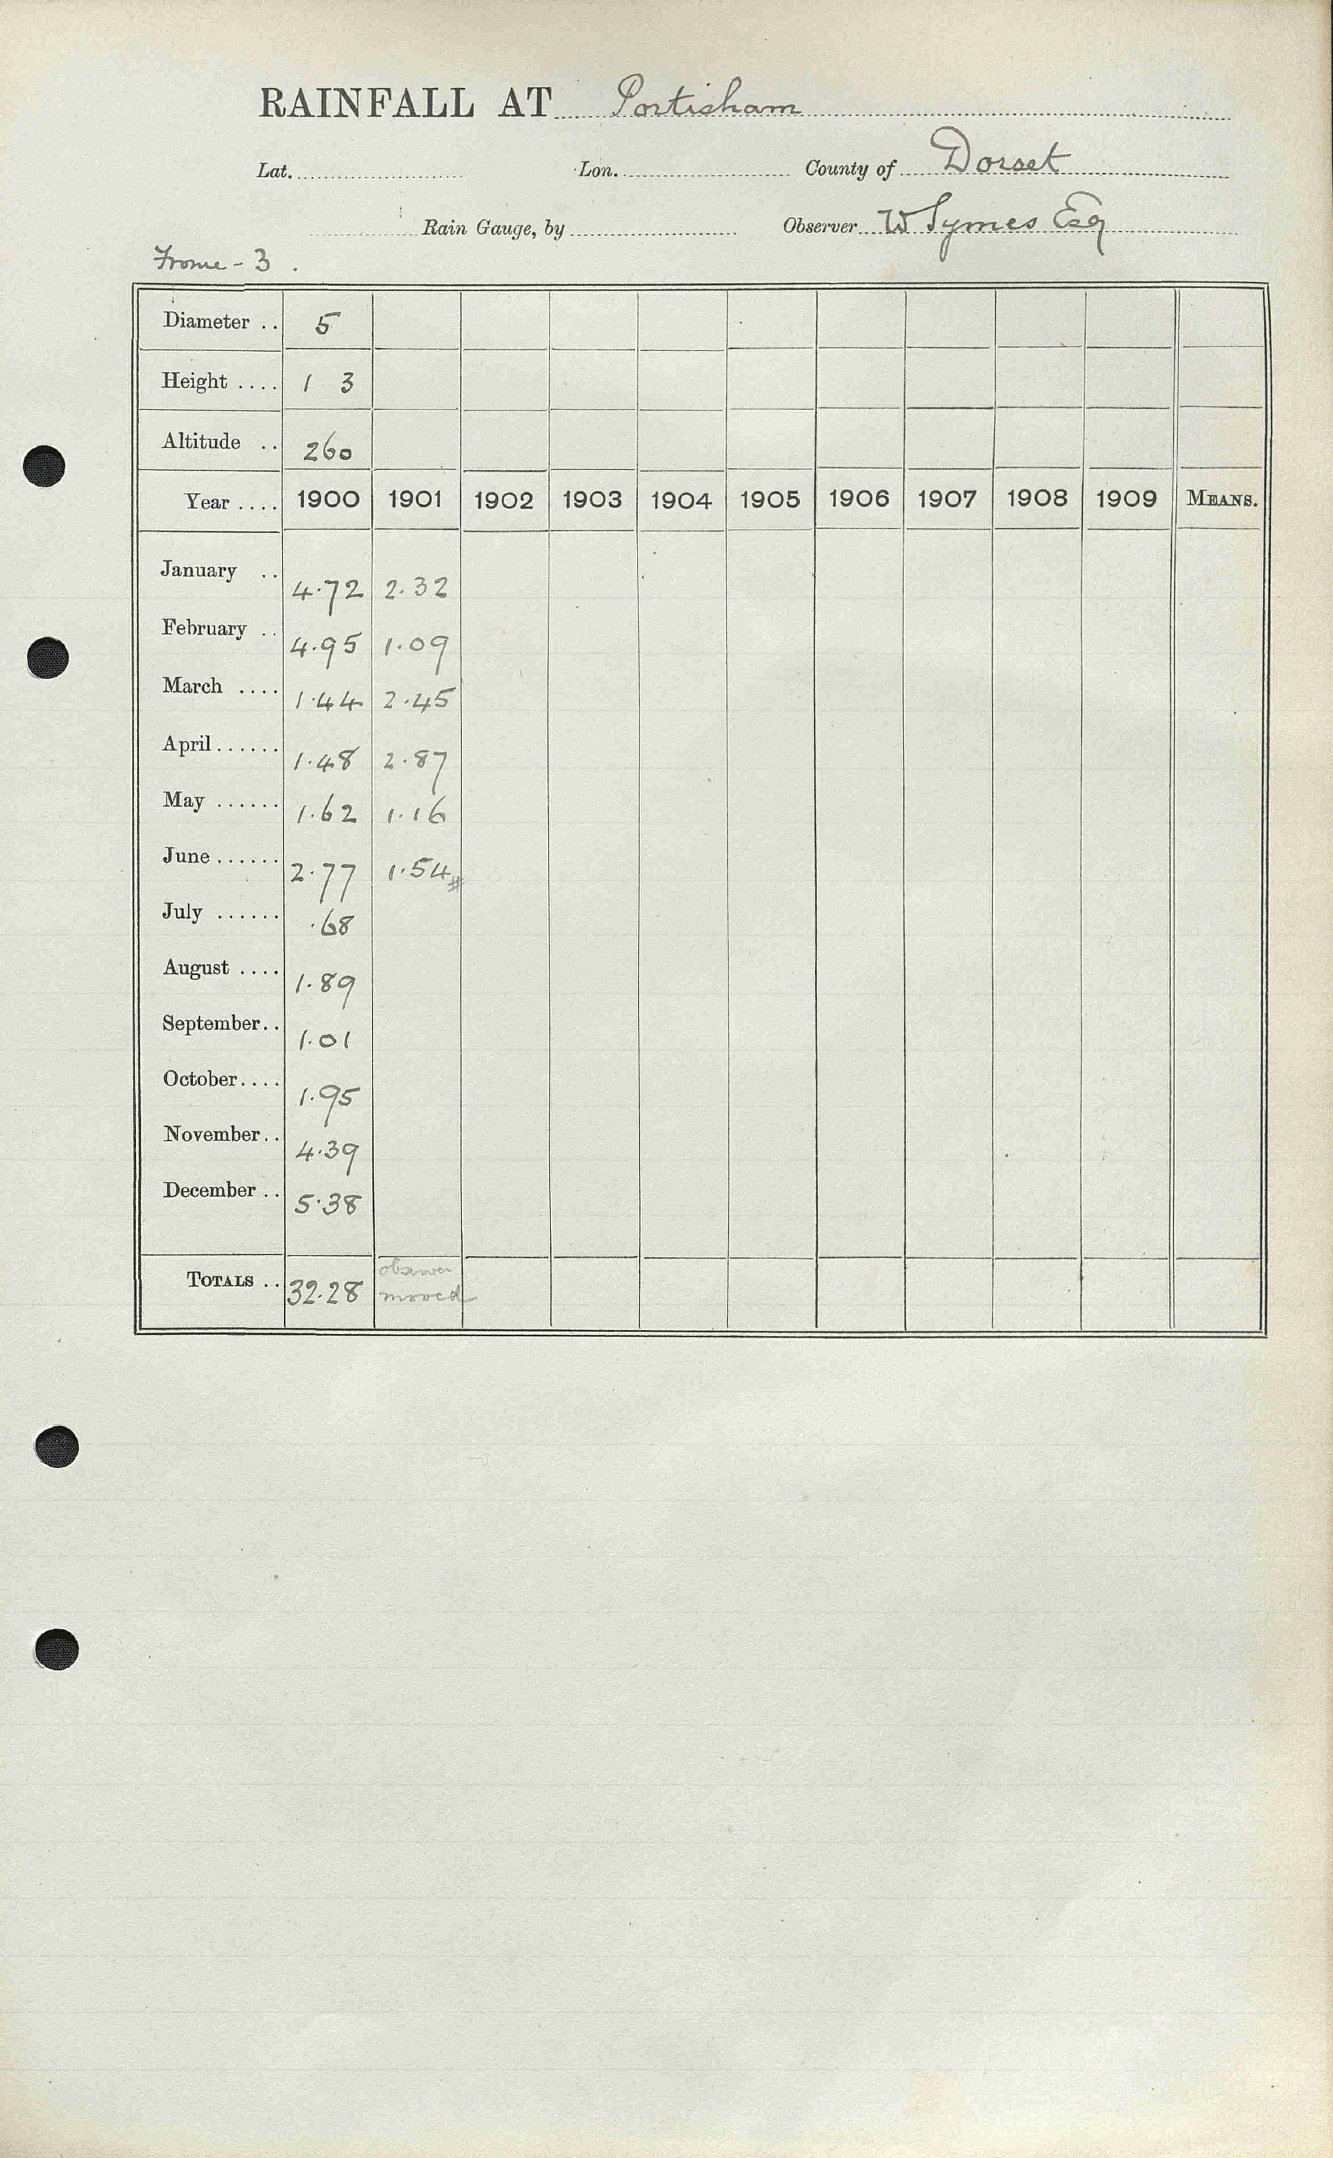 RAINFALL AT Portisham
Lat. Lon. County of Dorset
Rain Gauge, by Observer W Symes Esq
Frome - 3 .
Diameter .. 5
Height .... 1 3
Altitude .. 260
Year .... 1900 1901 1902 1903 1904 1905 1906 1907 1908 1909 MEANS.
January .. 4.72 2.32
February .. 4.95 1.09
March .... 1.44 2.45
April ...... 1.48 2.87
May ...... 1.62 1.16
June ...... 2.77 1.54 #
July ...... .68
August .... 1.89
September .. 1.01
October .... 1.95
November .. 4.39
December .. 5.38
TOTALS .. 32.28 observer
moved